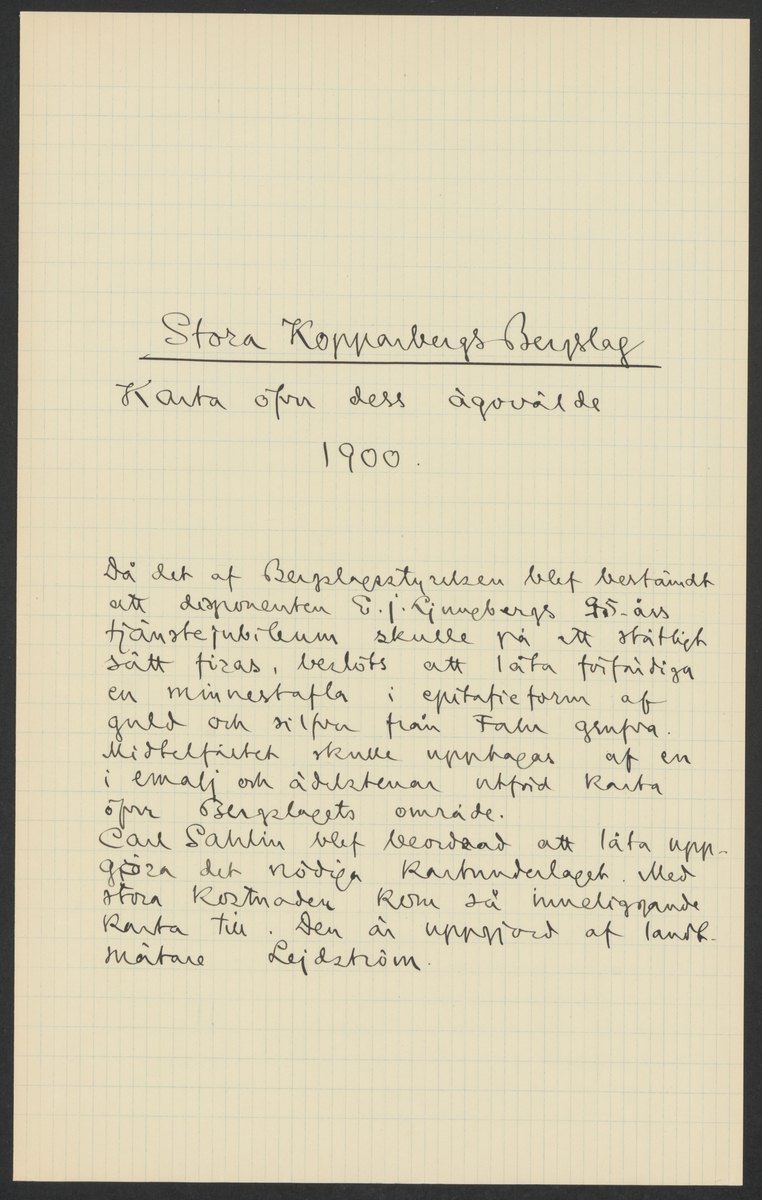 Stora Kopparbergs Bergslag
Karta öfver dess ägovälde
1900.
Då det af Bergslagsstyrelsen blef bestämdt
att disponenten E. J. Ljungbergs 25-års
tjänstejubileum skulle på ett ståtligt
sätt firas, beslöts att låta förfärdiga
en minnestafla i epitafieform af
guld och silfver från Falu grufva.
Midtelfältet skulle upptagas af en
i emalj och ädelstenar utförd karta
öfver Bergslagets område.
Carl Sahlin blef beordrad att låta upp-
göra det nödiga kartunderlaget. Med
stora kostnader kom så inneliggande
karta till. Den är uppgjord af landt-
mätare Lejdström.